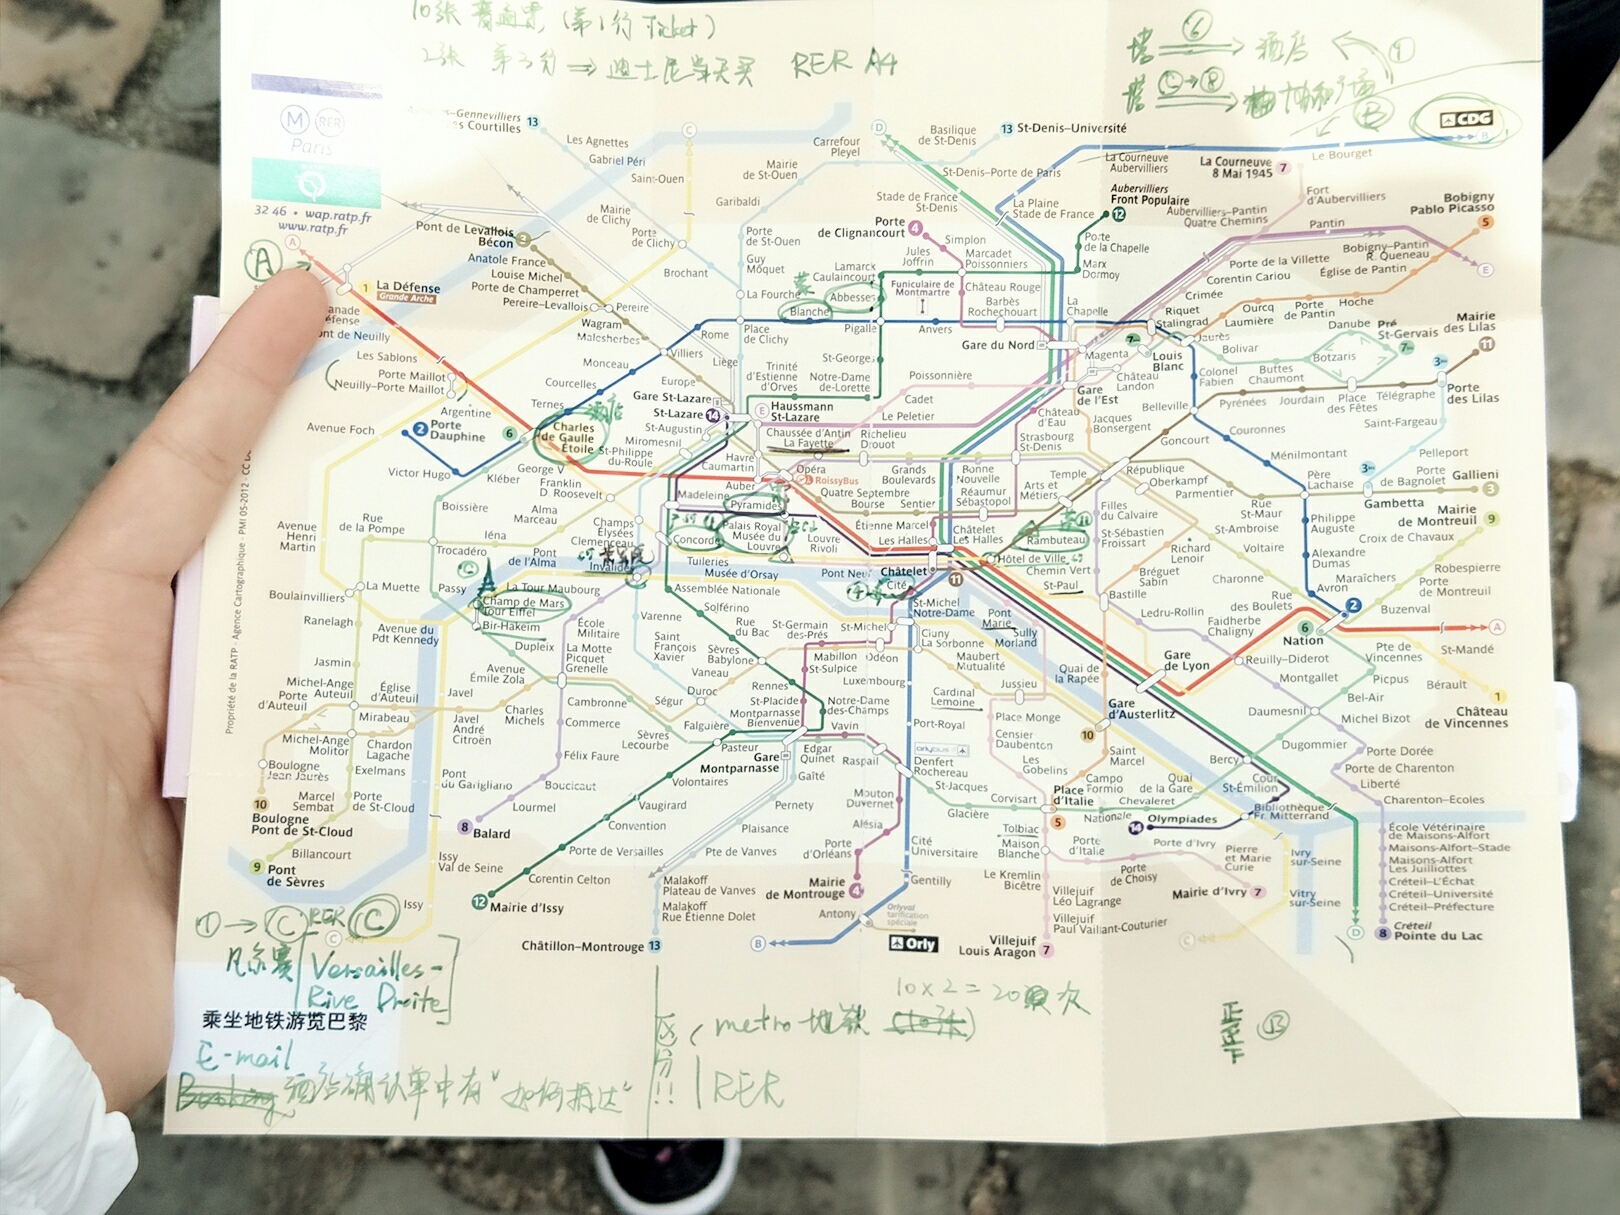 10张 普通票 (第1行 Ticket)
2张 第3个 ⇒ 迪士尼当天买 RER A4
塔 ⑥ 酒店
塔 Ⓒ→⑧
CDG
B
M RER
Paris
32 46 • wap.ratp.fr
www.ratp.fr
Gennevilliers
Les Courtilles 13
Les Agnettes
Gabriel Péri
Saint-Ouen
Mairie de Clichy
Porte de Clichy
Brochant
C
Garibaldi
Mairie de St-Ouen
Carrefour Pleyel
D
Basilique de St-Denis
13 St-Denis–Université
St-Denis–Porte de Paris
Stade de France St-Denis
La Plaine Stade de France
La Courneuve Aubervilliers
Le Bourget
La Courneuve 8 Mai 1945 7
Fort d'Aubervilliers
Aubervilliers–Pantin Quatre Chemins
Aubervilliers Front Populaire 12
Porte de la Chapelle
Marx Dormoy
Porte de Clignancourt 4
Simplon
Jules Joffrin
Marcadet Poissonniers
Lamarck Caulaincourt
Château Rouge
Funiculaire de Montmartre
Abbesses
Barbès Rochechouart
La Chapelle
Porte de la Villette
Corentin Cariou
Crimée
Riquet
Stalingrad
Pantin
Bobigny Pablo Picasso 5
Bobigny–Pantin R. Queneau
Église de Pantin
Hoche
Porte de Pantin
Ourcq
Laumière
Jaurès
E
Pont de Levallois Bécon 3
Anatole France
Louise Michel
Porte de Champerret
Pereire–Levallois
Pereire
Wagram
Malesherbes
Villiers
Porte de St-Ouen
Guy Môquet
La Fourche
Place de Clichy
Blanche
Pigalle
Anvers
Rome
Liège
A
1 La Défense
Grande Arche
Les Sablons
Porte Maillot
Neuilly–Porte Maillot
Argentine
Avenue Foch
2 Porte Dauphine
Victor Hugo
Kléber
6
Charles de Gaulle Étoile
酒店
Ternes
Courcelles
Monceau
Europe
Gare St-Lazare
St-Lazare 14
St-Augustin
Miromesnil
St-Philippe du-Roule
George V
Franklin D Roosevelt
Boissière
Alma Marceau
Iéna
Trocadéro
Rue de la Pompe
Avenue Henri Martin
Trinité d'Estienne d'Orves
St-Georges
Notre-Dame de-Lorette
E Haussmann St-Lazare
Chaussée d'Antin La Fayette
Le Peletier
Cadet
Poissonnière
Richelieu Drouot
Gare du Nord
Magenta
Gare de l'Est
Château Landon
7bis Louis Blanc
Colonel Fabien
Belleville
Goncourt
Jacques Bonsergent
Château d'Eau
Strasbourg St-Denis
Bolivar
Buttes Chaumont
Botzaris
Danube
Pré St-Gervais 7bis
Place des Fêtes
Jourdain
Pyrénées
Télégraphe
Mairie des Lilas 11
3bis
Porte des Lilas
Saint-Fargeau
Pelleport
Couronnes
Ménilmontant
Père Lachaise
Gambetta
Porte de Bagnolet
Gallieni 3
Mairie de Montreuil 9
Croix de Chavaux
Robespierre
Porte de Montreuil
Maraîchers
Buzenval
Avron
Alexandre Dumas
Philippe Auguste
Havre Caumartin
Auber
Opéra
RoissyBus
Quatre Septembre
Bourse
Sentier
Grands Boulevards
Bonne Nouvelle
Réaumur Sébastopol
Arts et Métiers
Temple
République
Oberkampf
Parmentier
Rue St-Maur
St-Ambroise
Voltaire
Charonne
Rue des Boulets
Filles du Calvaire
St-Sébastien Froissart
Richard Lenoir
Chemin Vert
Bréguet Sabin
Madeleine
Pyramides
Palais Royal Musée du Louvre
Concorde
Tuileries
Louvre Rivoli
Étienne Marcel
Les Halles
Châtelet Les Halles
Rambuteau
Hôtel de Ville
St-Paul
Châtelet
11
Pont Neuf
Cité
Bastille
Ledru-Rollin
Faidherbe Chaligny
Nation
6
2
A
St-Mandé
Pte de Vincennes
Picpus
Bérault
1 Château de Vincennes
Bel-Air
Montgallet
Daumesnil
Michel Bizot
Reuilly–Diderot
Gare de Lyon
Champs Elysées Clemenceau
Invalides
Pont de l'Alma
La Tour Maubourg
Champ de Mars Tour Eiffel
Bir-Hakeim
Passy
La Muette
Boulainvilliers
Ranelagh
Jasmin
Avenue du Pdt Kennedy
École Militaire
La Motte Picquet Grenelle
Dupleix
Avenue Émile Zola
Cambronne
Sèvres Lecourbe
Ségur
Musée d'Orsay
Assemblée Nationale
Solférino
Varenne
Rue du Bac
Saint François Xavier
Sèvres Babylone
Vaneau
Duroc
Falguière
Pasteur
St-Germain des-Prés
St-Michel
St-Michel Notre-Dame
Mabillon
Odéon
Cluny La Sorbonne
St-Sulpice
Luxembourg
Rennes
St-Placide
Notre-Dame des-Champs
Montparnasse Bienvenue
Vavin
Edgar Quinet
Raspail
Port-Royal
Denfert Rochereau
orlybus
Pont Marie
Sully Morland
Maubert Mutualité
Cardinal Lemoine
Jussieu
Place Monge
Censier Daubenton
Les Gobelins
Quai de la Rapée
Gare d'Austerlitz
10
Saint Marcel
Campo Formio
Quai de la Gare
Chevaleret
Nationale
Place d'Italie
5
Corvisart
Glacière
St-Jacques
Bercy
Cour St-Emilion
Bibliothèque Fr. Mitterrand
14 Olympiades
Dugommier
Porte Dorée
Porte de Charenton
Liberté
Charenton–Ecoles
École Vétérinaire de Maisons-Alfort
Maisons-Alfort–Stade
Maisons-Alfort Les Juilliottes
Créteil–L'Échat
Créteil–Université
Créteil–Préfecture
8 Créteil Pointe du Lac
D
Michel-Ange Auteuil
Église d'Auteuil
Porte d'Auteuil
Mirabeau
Javel
Javel André Citroën
Charles Michels
Commerce
Félix Faure
Boucicaut
Lourmel
8 Balard
Michel-Ange Molitor
Chardon Lagache
Exelmans
Boulogne Jean Jaurès
Marcel Sembat
Porte de St-Cloud
10 Boulogne Pont de St-Cloud
Billancourt
9 Pont de Sèvres
Pont du Garigliano
Issy Val de Seine
Issy
C
Gare Montparnasse
Gaîté
Volontaires
Vaugirard
Convention
Porte de Versailles
Corentin Celton
12 Mairie d'Issy
Pernety
Plaisance
Pte de Vanves
Malakoff Plateau de Vanves
Malakoff Rue Étienne Dolet
Châtillon–Montrouge 13
Mouton Duvernet
Alésia
Porte d'Orléans
Mairie de Montrouge 4
Cité Universitaire
Gentilly
B
Antony
Orlyval tarification spéciale
Orly
Tolbiac
Maison Blanche
Porte d'Italie
Le Kremlin Bicêtre
Villejuif Léo Lagrange
Villejuif Paul Vaillant-Couturier
Villejuif Louis Aragon 7
Porte de Choisy
Porte d'Ivry
Pierre et Marie Curie
Mairie d'Ivry 7
C
Ivry sur-Seine
Vitry sur-Seine
Propriété de la RATP - Agence Cartographique - PMI 05-2012
① → Ⓒ RER Ⓒ
凡尔赛 [Versailles-
Rive Droite]
乘坐地铁游览巴黎
E-mail
酒店确认单中有"如何抵达"
区分!!
metro 地铁
RER
10×2=20次